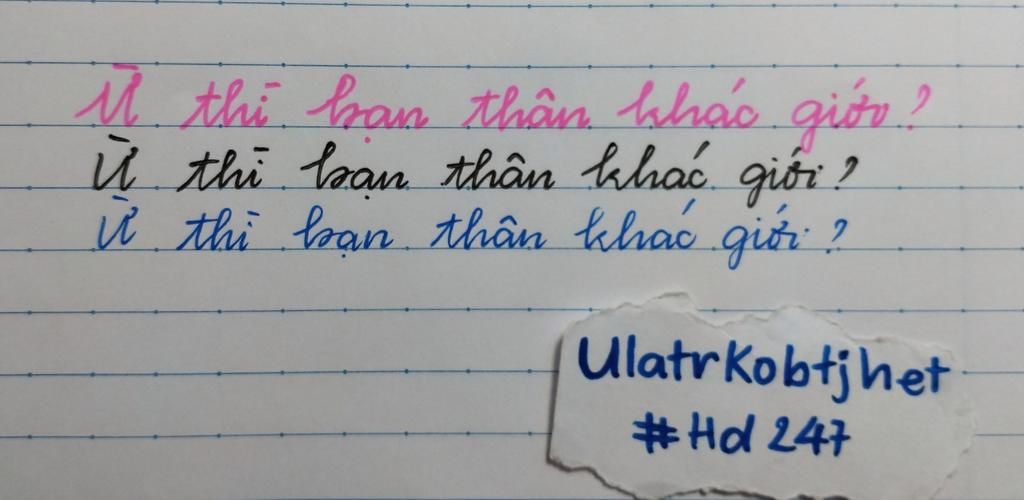 Ừ thì bạn thân khác giới?
Ừ thì bạn thân khác giới?
Ừ thì bạn thân khác giới?
Ulatrkobtjhet
#Hd 247